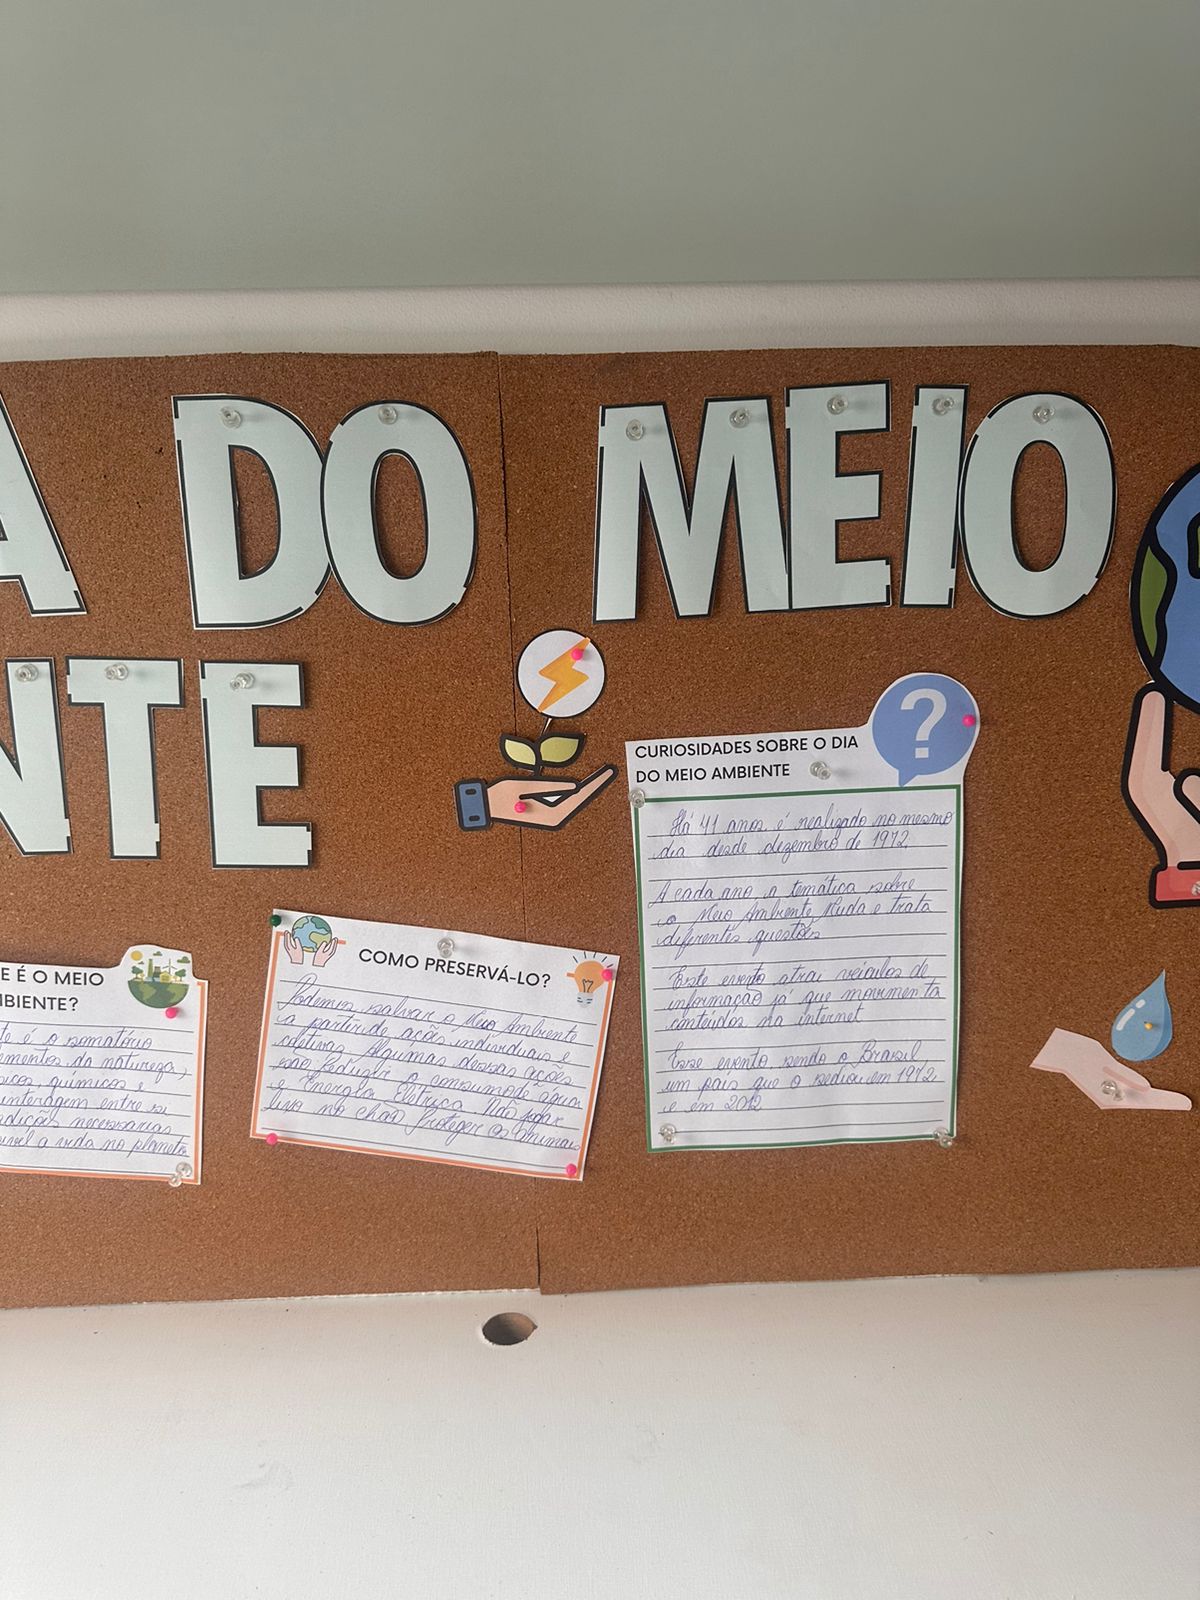 A DO MEIO
NTE
CURIOSIDADES SOBRE O DIA
DO MEIO AMBIENTE
Há 41 anos é realizado no mesmo
dia desde dezembro de 1972.
A cada ano, a temática sobre
o Meio Ambiente Muda e trata
diferentes questões
Este evento atrai veiculos de
informação já que movimenta
conteúdos na internet
Esse evento sendo o Brasil,
um país que o sediou em 1972,
e em 2012
COMO PRESERVÁ-LO?
Podemos salvar o Meio Ambiente
a partir de ações individuais e
coletivas Algumas dessas ações
são: Reduzir o consumo de água
e Energia Elétrica. Não jogar
lixo no chão Proteger os Animais
E É O MEIO
MBIENTE?
te é o somatório
ementos da natureza,
sicos, químicos e
interagem entre si
dições necessarias
sível a vida no planeta